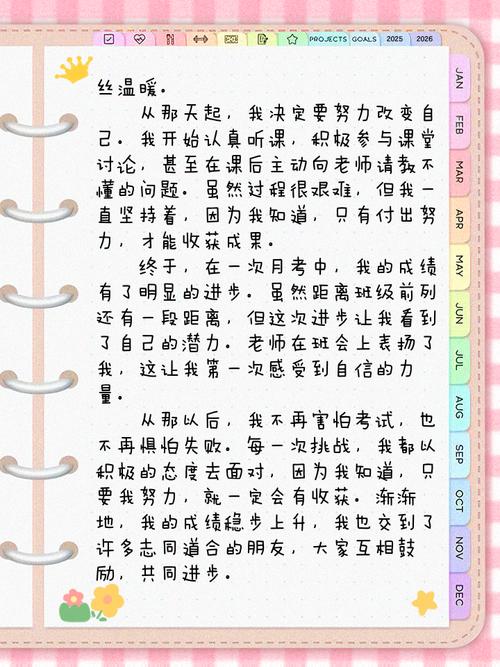 PROJECTS GOALS 2025 2026
丝温暖。
从那天起，我决定要努力改变自
己。我开始认真听课，积极参与课堂
讨论，甚至在课后主动向老师请教不
懂的问题。虽然过程很艰难，但我一
直坚持着，因为我知道，只有付出努
力，才能收获成果。
终于，在一次月考中，我的成绩
有了明显的进步。虽然距离班级前列
还有一段距离，但这次进步让我看到
了自己的潜力。老师在班会上表扬了
我，这让我第一次感受到自信的力
量。
从那以后，我不再害怕考试，也
不再惧怕失败。每一次挑战，我都以
积极的态度去面对，因为我知道，只
要我努力，就一定会有收获。渐渐
地，我的成绩稳步上升，我也交到了
许多志同道合的朋友，大家互相鼓
励，共同进步。
JAN
FEB
MAR
APR
MAY
JUN
JUL
AUG
SEP
OCT
NOV
DEC